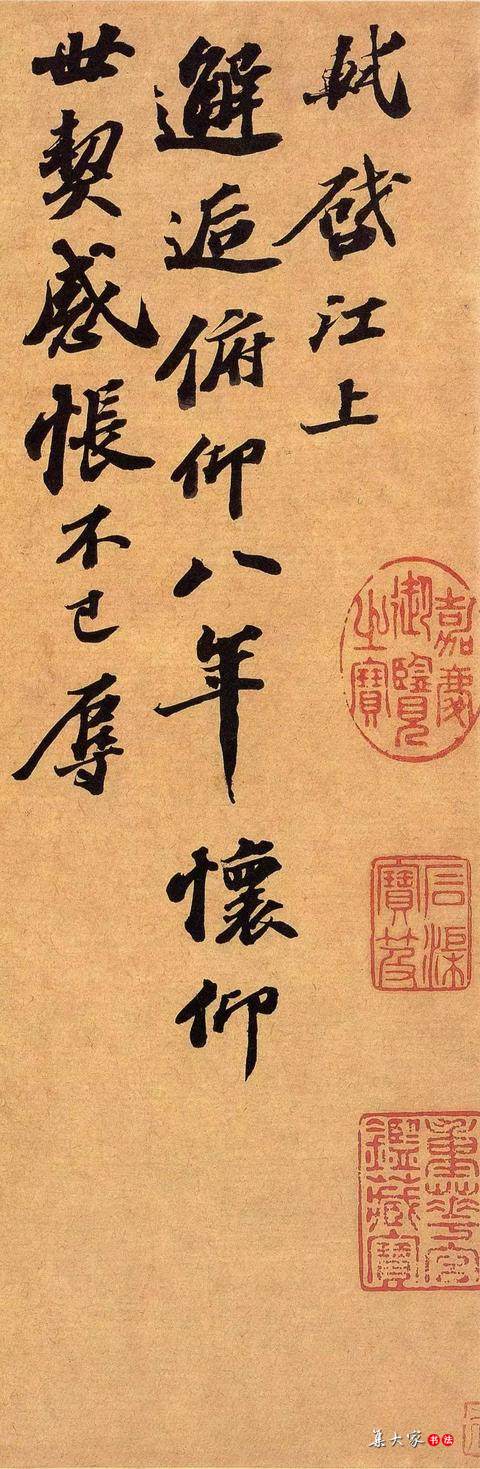 軾啓江上
邂逅俯仰八年懷仰
世契感悵不已辱
嘉慶
御覽
之寶
石渠
寶笈
重華宮
鑑藏寶
集大家书法